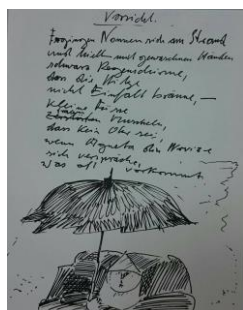 Vorsicht.
Nonnen sich am Strand
und hielten mit gewaschnen Händen
schwarze Regenschirme,
dass die Hitze
nicht Einfalt bräune, –
kleine Füsse
Muscheln,
dass kein Ohr sei,
wenn Agneta die Novize
sich verspräche,
was oft vorkommt